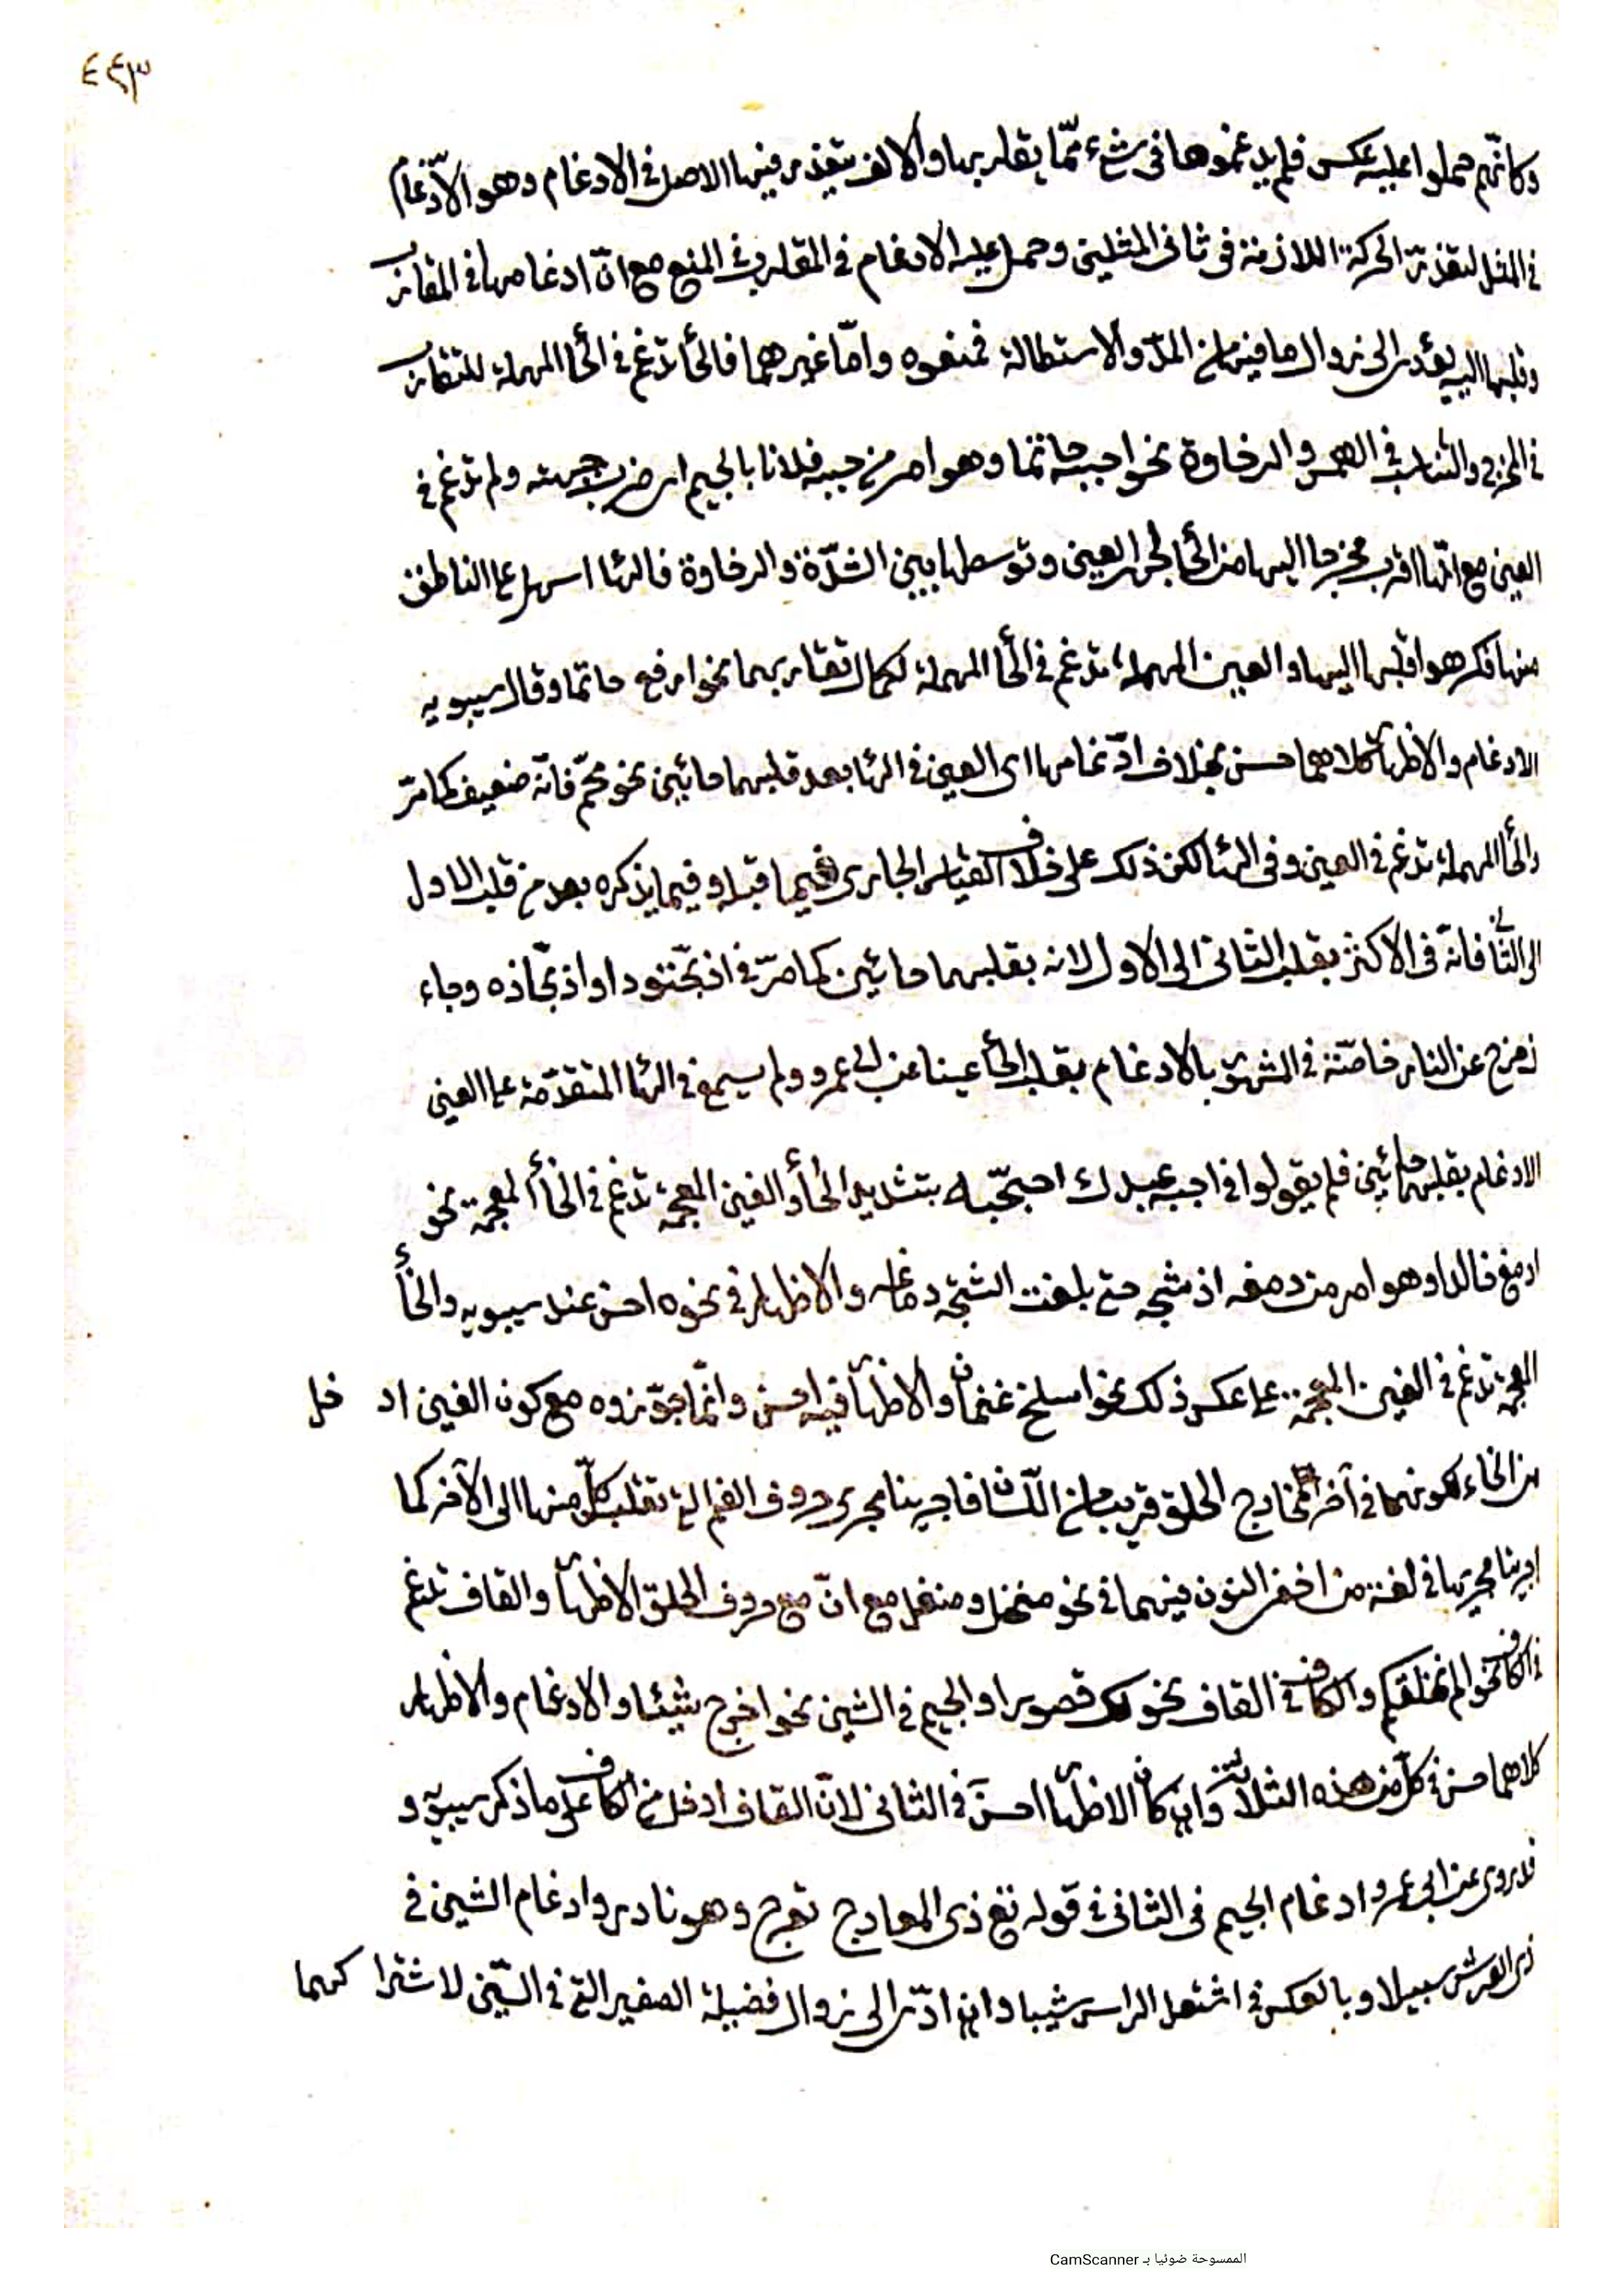 ٤٤٣
وكانّهم حملوا عليه عكسه فلم يدغموها فى شئ ممّا يقاربها والالف يتعذر فيها الاصل فى الادغام وهو الادّغام
فى المثل لتعذر الحركة اللازمة فى ثانى المثلين وحمل عليه الادغام فى المقارب فى المنع مع انّ ادغامها فى المقارب
وقلبها اليه يؤدى الى زوال ما فيها من المدّ والاستطالة فمنعوه وامّا غيرهما فالهأ تدغم فى الحأ المهملة للتقارب
فى المخرج والتناسب فى الهمس والرخاوة نحو اجبه حاتما وهو امر من جبه فلانا بالجيم اى ضرب جبهته ولم تدغم فى
العين مع انّها اقرب مخرجا اليها من الحأ لجهر العين وتوسطها بين الشدّة والرخاوة فالهأ اسهل على الناطق
منها فكرهوا قلبها اليها والعين المهملة تدغم فى الحأ المهملة لكمال تقاربهما نحو ارفع حاتما وقال سيبويه
الادغام والاظهار كلاهما حسن بخلاف ادّغامها اى العين فى الهأ بعد قلبهما حائين نحو محّم فانّه ضعيف كما مرّ
والحأ المهملة تدغم فى العين وفى الهأ لكن ذلك على خلاف القياس الجارى فيما قبله وفيما يذكره بعد من قلب الاول
الى الثانى فانّه فى الاكثر بقلب الثانى الى الاول لانه بقلبهما حائين كما مرّ فى اذبحّتودا واذبحّاذه وجاء
زحزح عن النار خاصّة فى الشهر بالادغام بقلب الحأ عينا عن ابى عمرو ولم يسمع فى الهأ المتقدّمة على العين
الادغام بقلبهما حائين فلم يقولوا فى اجبه عبدك اجبحّبدك بتشديد الحأ والغين المعجمة تدغم فى الخأ المعجمة نحو
ادمغ خالدا وهو امر من دمغه اذ شجه حتى بلغت الشجّة دماغه والاظهار فى نحوه احسن عند سيبويه والخأ
المعجمة تدغم فى الغين المعجمة على عكس ذلك نحو اسلخ غنمك والاظهار فيه احسن وانّما جوّزوه مع كون الغين اد خل
من الخاء لكونهما فى آخر مخارج الحلق قريبا من اللسان فاجريتا مجرى حروف الفم التى تقلب كلّ منها الى الآخر كما
اجريتا مجريها فى لغة من اخفى النون فيهما فى نحو منخل ومنغل مع انّ مع حروف الحلق الاظهار والقاف تدغم
فى الكاف نحو الم نخلقكم والكاف فى القاف نحو لك قصورا والجيم فى الشين نحو اخرج شيئا والادغام والاظهار
كلاهما حسن فى كلّ من هذه الثلاثة وان كان الاظهار احسن فى الثانى لانّ القاف ادخل من الكاف على ما ذكر سيبويه و
قد روى عن ابى عمرو ادغام الجيم فى التأ فى قوله تع ذى المعارج تعرج وهو نادر وادغام الشين فى
ذى العرش سبيلا وبالعكس فى اشتعل الراس شيبا وان ادّى الى زوال فضيلة الصفير التى فى السّين لاشترا كهما
الممسوحة ضوئيا بـ CamScanner